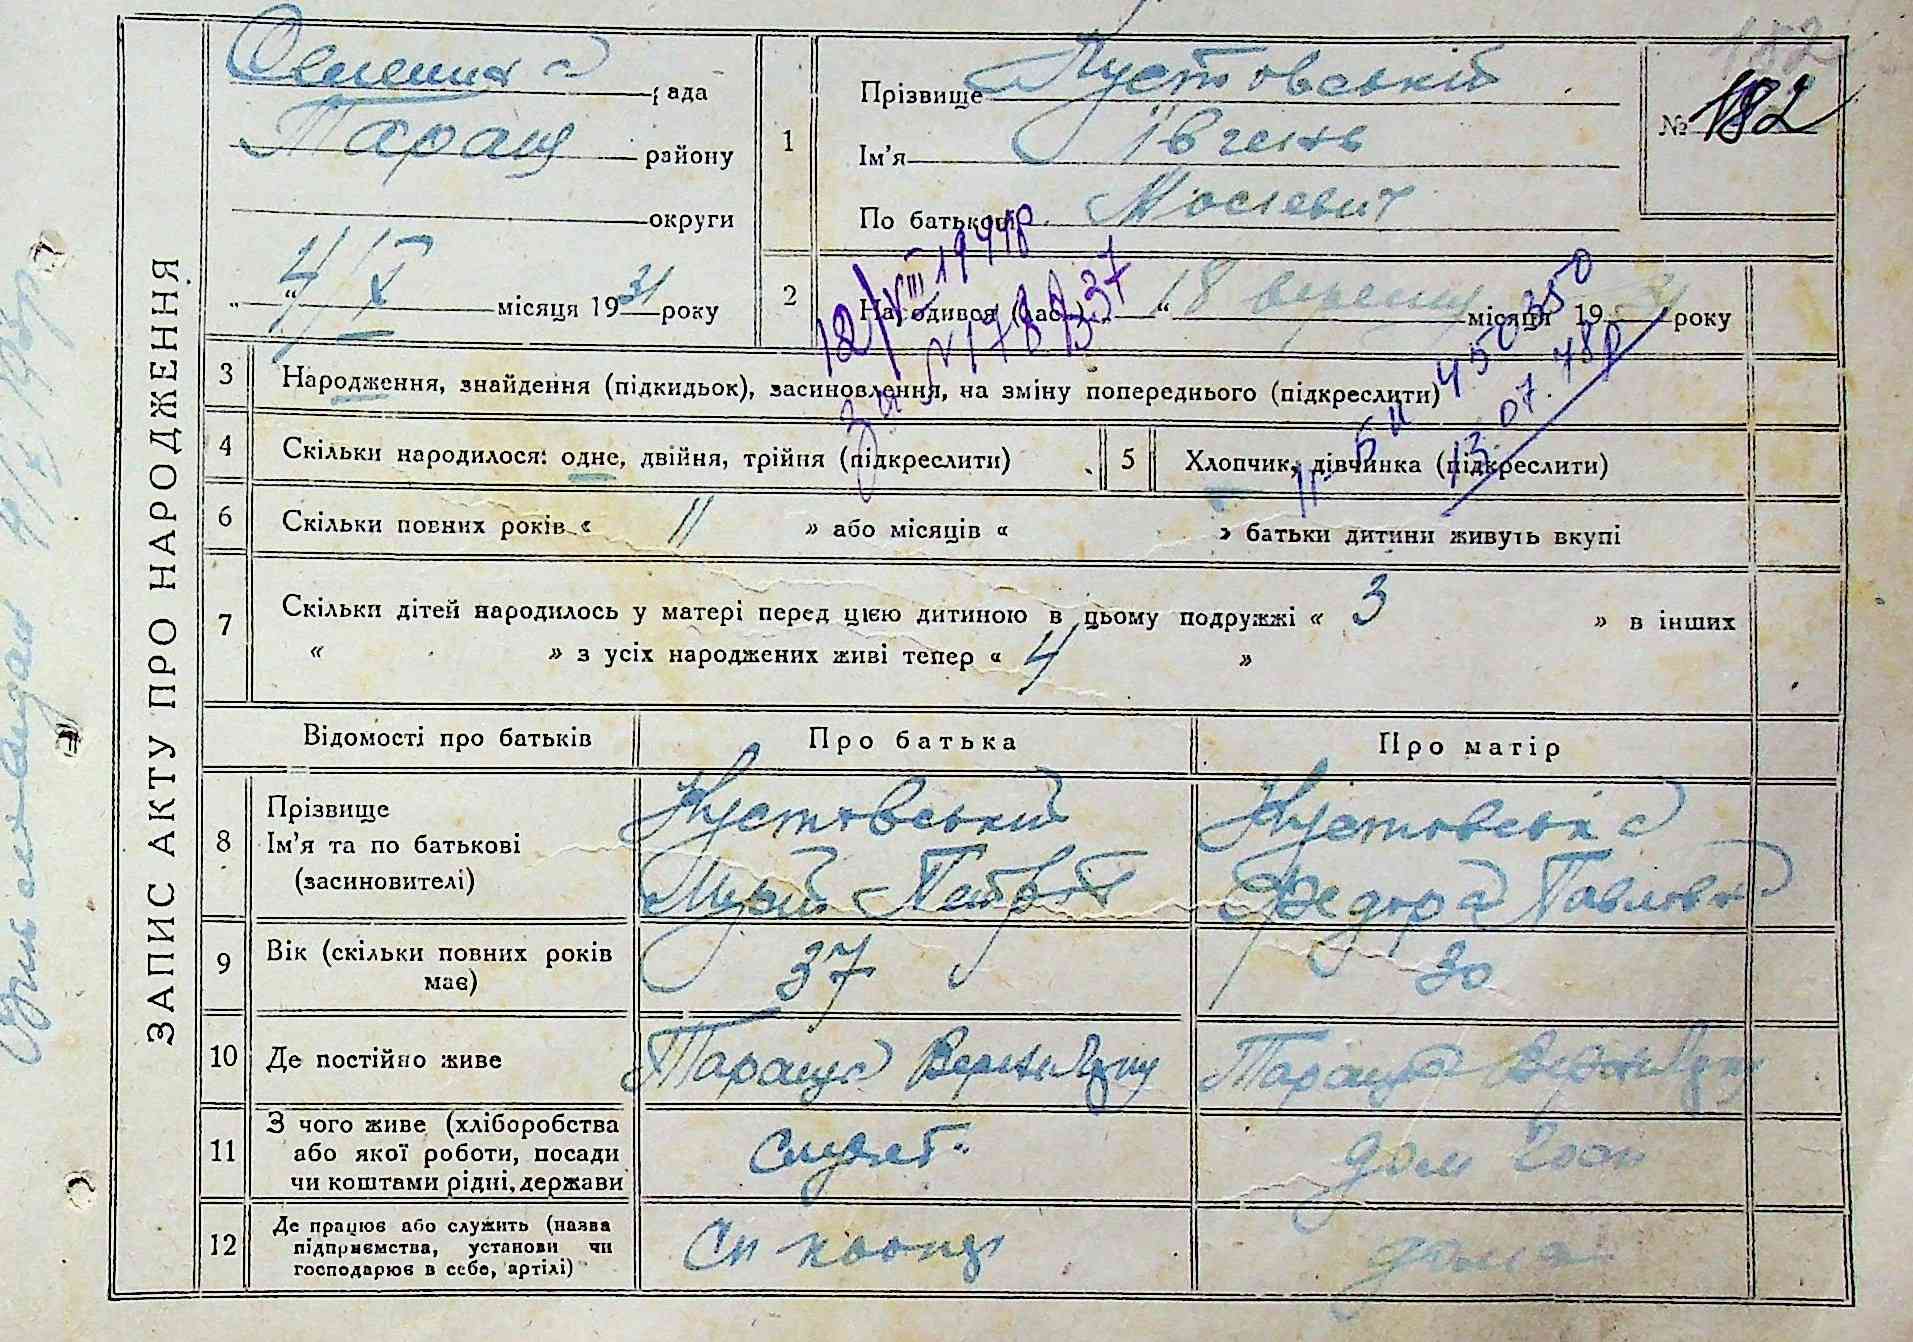 ЗАПИС АКТУ ПРО НАРОДЖЕННЯ
рада
Таращ району
округи
" 4/X місяця 1931 року
1
Прізвище Кустовський
Ім'я Івгень
По батькові Мосієвич
№ 182
182
2
Народився (лась) " 18 вересня місяця 1931 року
12/VIII 1944р
450350
13.07.78р
3 Народження, знайдення (підкидьок), засиновлення, на зміну попереднього (підкреслити)
4 Скільки народилося: одне, двійня, трійня (підкреслити)
5 Хлопчик, дівчинка (підкреслити)
6 Скільки повних років « 11 » або місяців « » батьки дитини живуть вкупі
7 Скільки дітей народилось у матері перед цією дитиною в цьому подружжі « 3 » в інших
« » з усіх народжених живі тепер « 4 »
Відомості про батьків Про батька Про матір
8 Прізвище
Ім'я та по батькові
(засиновителі)
Кустовський
Кустовська
Федора Павловна
9 Вік (скільки повних років
має)
37 30
10 Де постійно живе Тараща Тараща
11 З чого живе (хліборобства
або якої роботи, посади
чи коштами рідні, держави
служб. дом
12 Де працює або служить (назва
підприємства, установи чи
господарює в себе, артілі)
дома